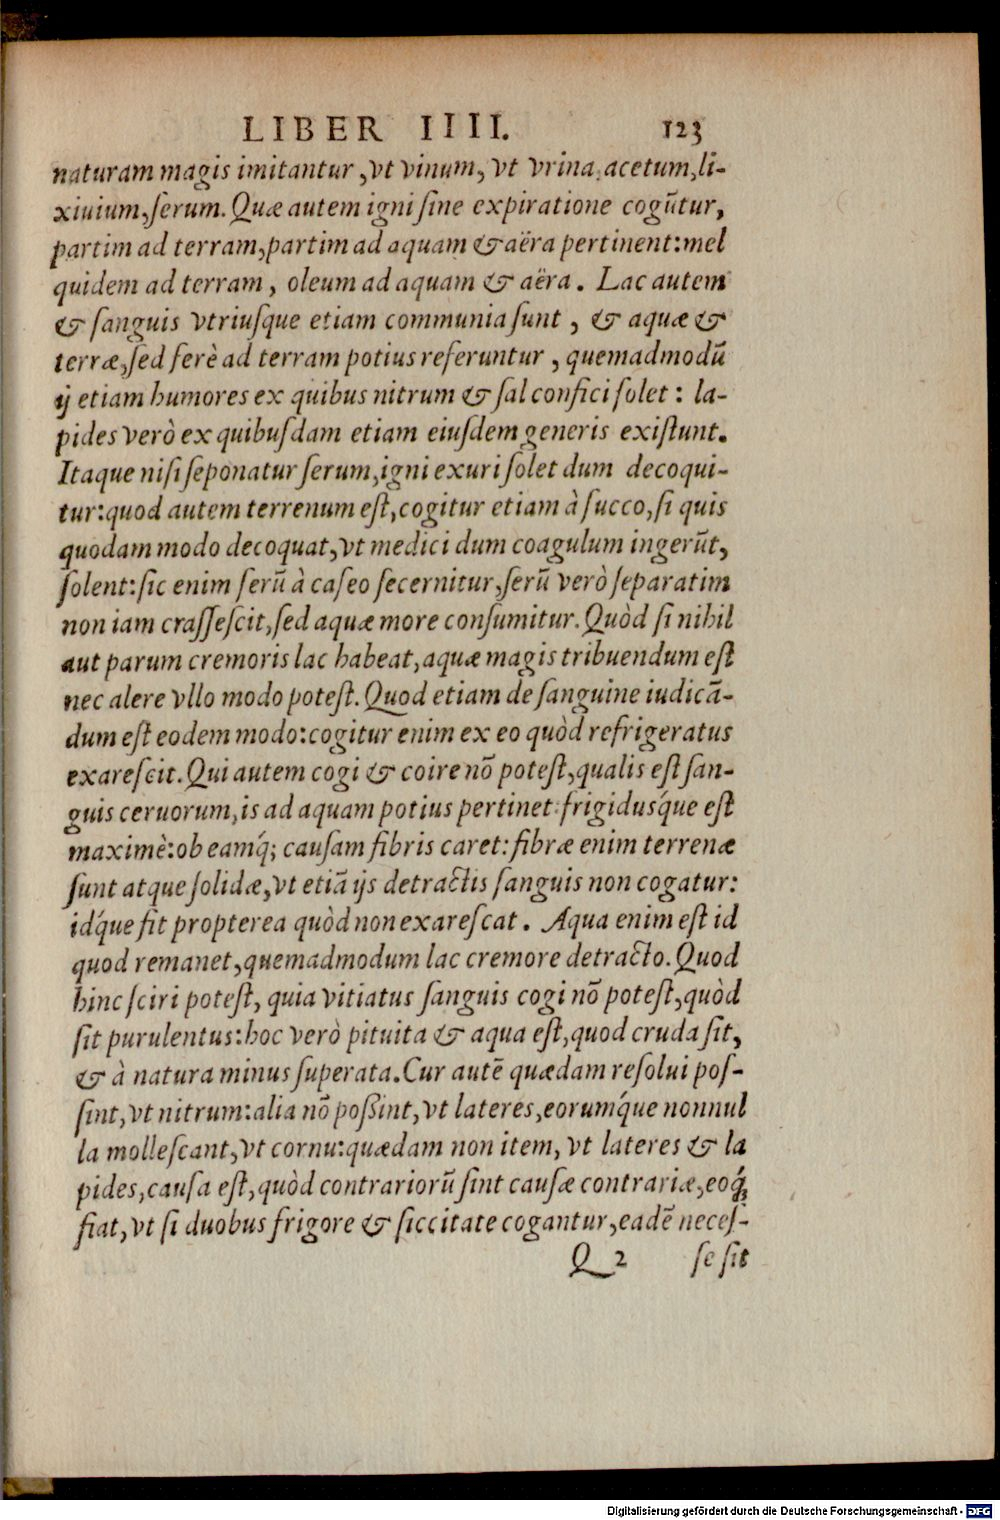 LIBER IIII. 123
naturam magis imitantur, vt vinum, vt vrina, acetum, li-
xiuium, ſerum. Quæ autem igni ſine expiratione cogūtur,
partim ad terram, partim ad aquam & aëra pertinent: mel
quidem ad terram, oleum ad aquam & aëra. Lac autem
& ſanguis vtriuſque etiam communia ſunt, & aquæ &
terræ, ſed ferè ad terram potius referuntur, quemadmodū
ij etiam humores ex quibus nitrum & ſal confici ſolet: la-
pides verò ex quibuſdam etiam eiuſdem generis exiſtunt.
Itaque niſi ſeponatur ſerum, igni exuri ſolet dum decoqui-
tur: quod autem terrenum eſt, cogitur etiam à ſucco, ſi quis
quodam modo decoquat, vt medici dum coagulum ingerūt,
ſolent: ſic enim ſerū à caſeo ſecernitur, ſerū verò ſeparatim
non iam craſſeſcit, ſed aquæ more conſumitur. Quòd ſi nihil
aut parum cremoris lac habeat, aquæ magis tribuendum eſt
nec alere vllo modo poteſt. Quod etiam de ſanguine iudicā-
dum eſt eodem modo: cogitur enim ex eo quòd refrigeratus
exareſcit. Qui autem cogi & coire nō poteſt, qualis eſt ſan-
guis ceruorum, is ad aquam potius pertinet: frigiduſq́ue eſt
maximè: ob eamq́; cauſam fibris caret: fibræ enim terrenæ
ſunt atque ſolidæ, vt etiā ijs detractis ſanguis non cogatur:
idq́ue fit propterea quòd non exareſcat. Aqua enim eſt id
quod remanet, quemadmodum lac cremore detracto. Quod
hinc ſciri poteſt, quia vitiatus ſanguis cogi nō poteſt, quòd
ſit purulentus: hoc verò pituita & aqua eſt, quod cruda ſit,
& à natura minus ſuperata. Cur autē quædam reſolui poſ-
ſint, vt nitrum: alia nō poßint, vt lateres, eorumq́ue nonnul
la molleſcant, vt cornu: quædam non item, vt lateres & la
pides, cauſa eſt, quòd contrariorū ſint cauſæ contrariæ, eoq́;
fiat, vt ſi duobus frigore & ſiccitate cogantur, eadē neceſ-
Q 2 ſe ſit
Digitalisierung gefördert durch die Deutsche Forschungsgemeinschaft - DFG